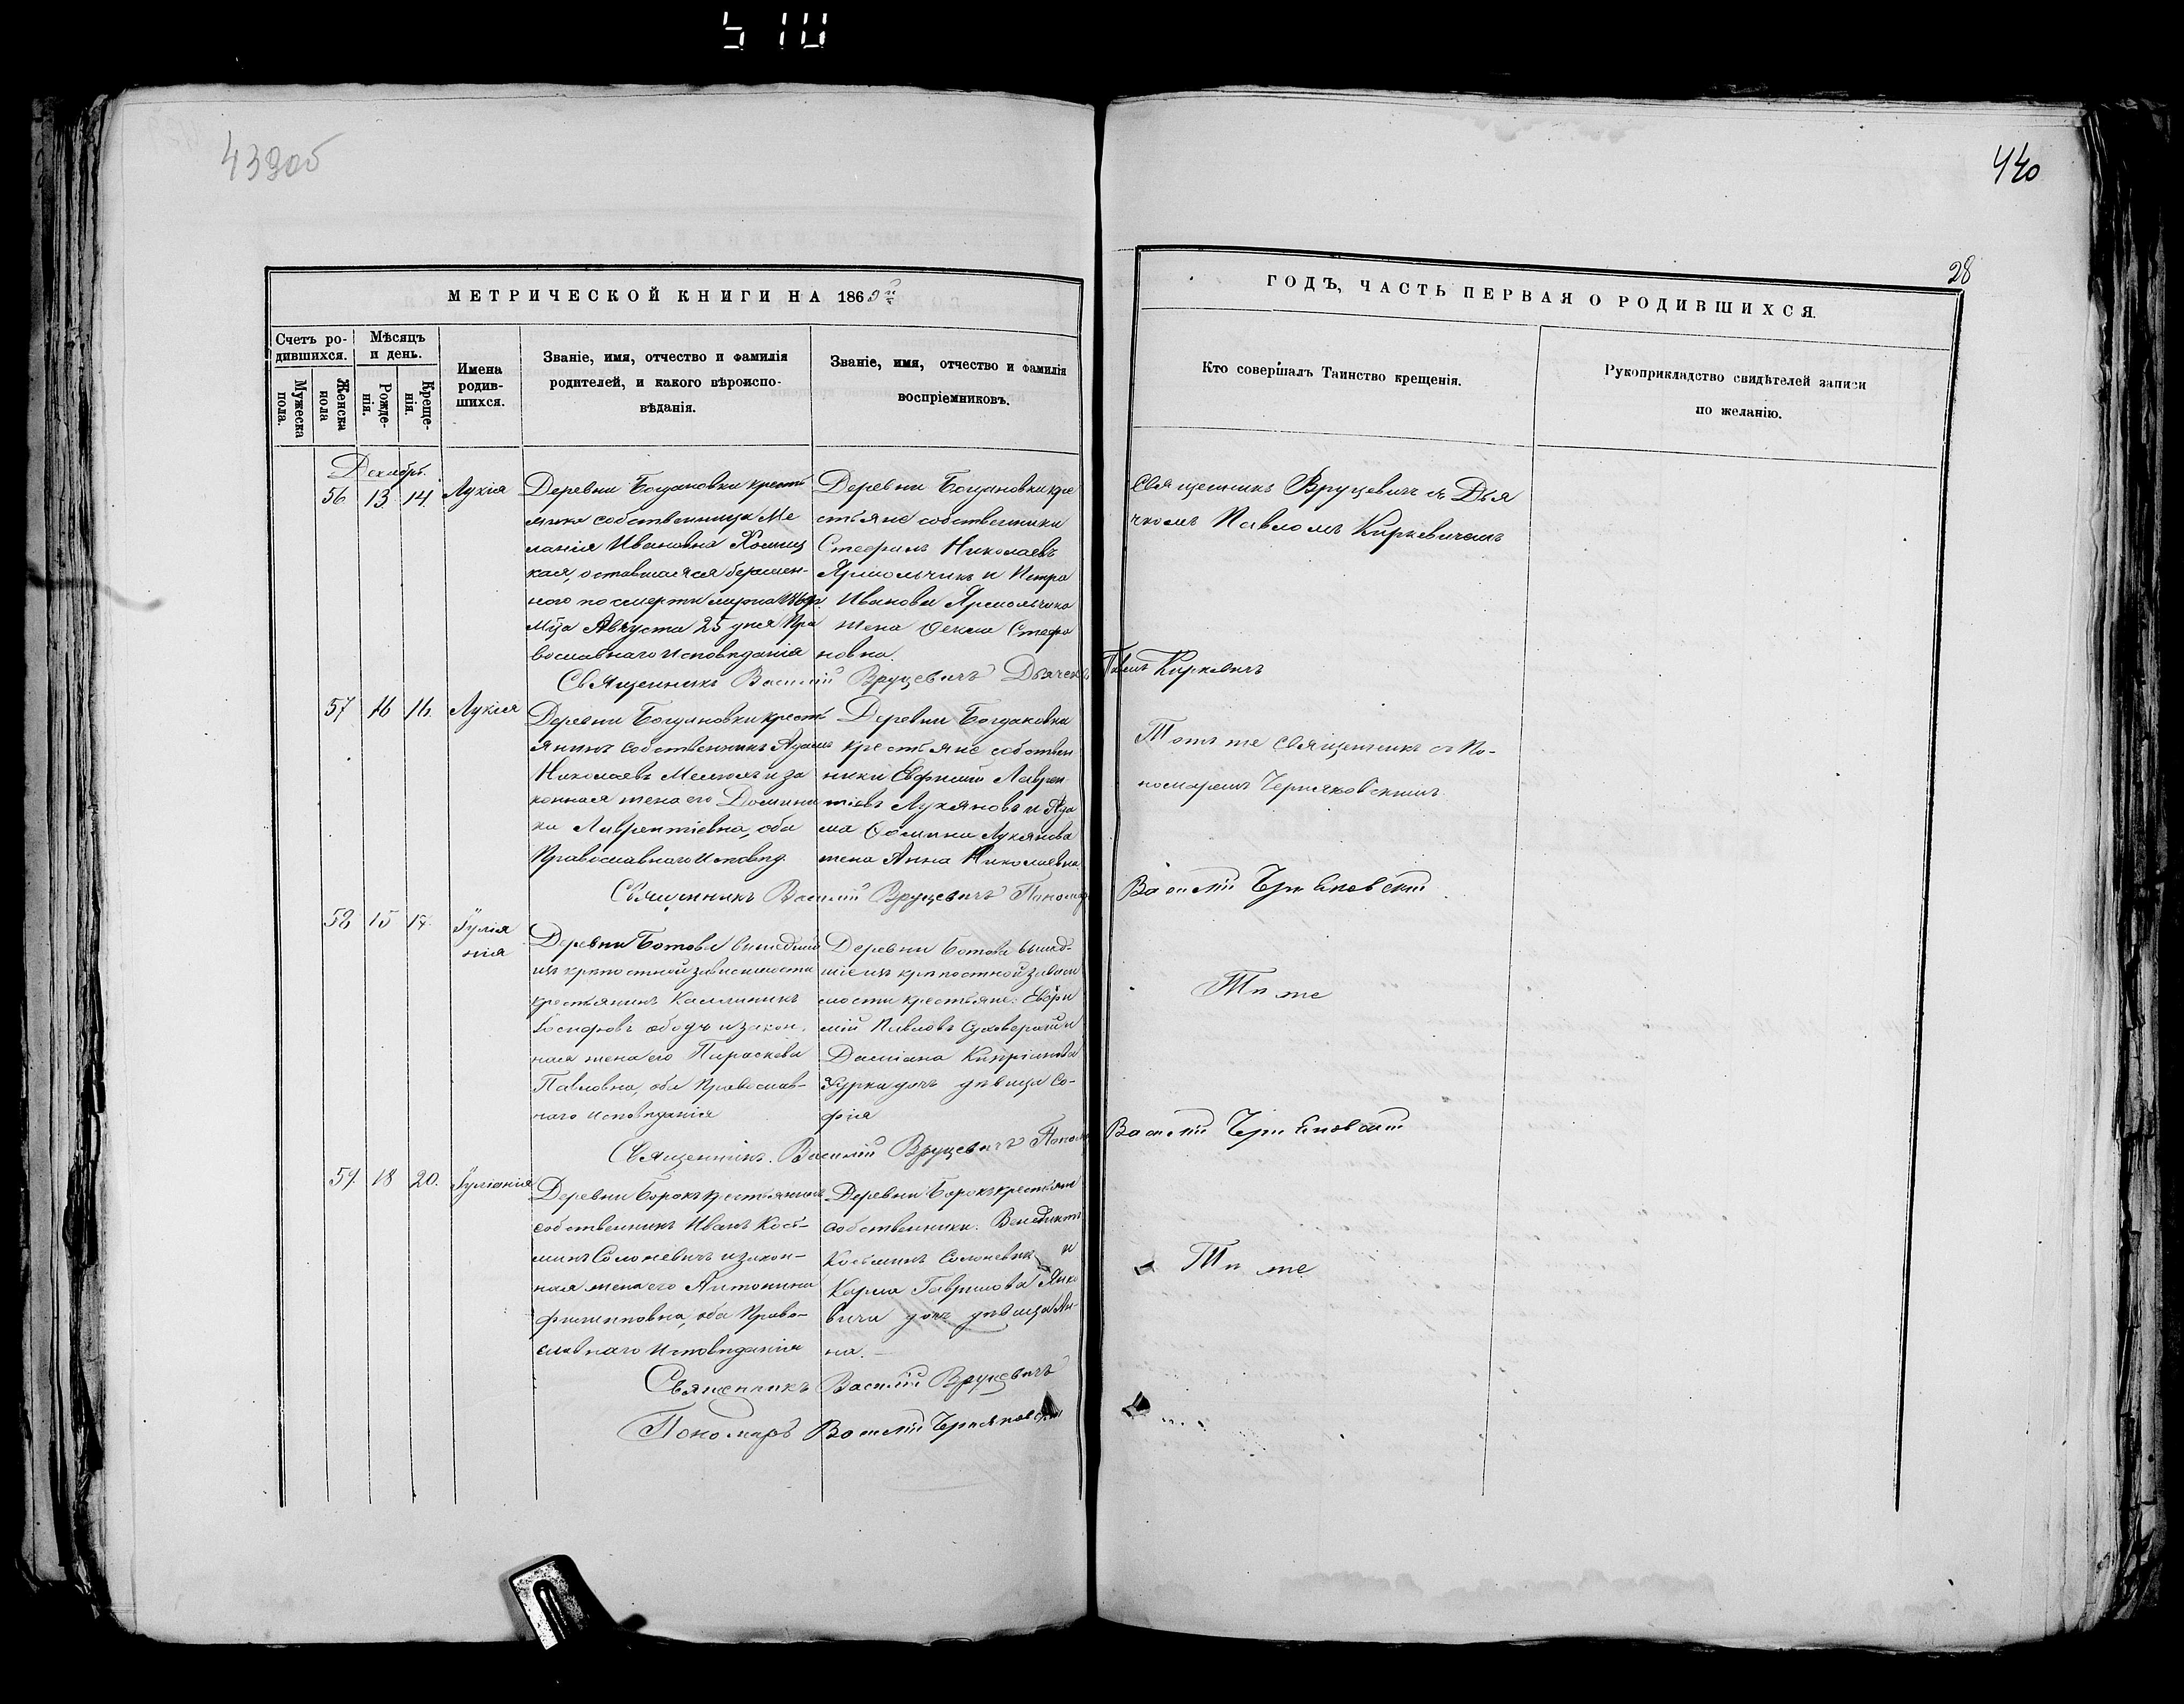 510
439об
440
28
МЕТРИЧЕСКОЙ КНИГИ НА 1869й
ГОДЪ, ЧАСТЬ ПЕРВАЯ О РОДИВШИХСЯ.
Счетъ ро-
дившихся.
Мужеска
пола.
Женска
пола
Мѣсяцъ
и день.
Рожде-
нія.
Креще-
нія.
Имена
родив-
шихся.
Званіе, имя, отчество и фамилія
родителей, и какого вѣроиспо-
вѣданія.
Званіе, имя, отчество и фамилія
воспріемниковъ.
Кто совершалъ Таинство крещенія.
Рукоприкладство свидѣтелей записи
по желанію.
Декабрь.
56 13 14. Лукія
Деревни Богдановки кресть
янка собственница Ме
ланія Ивановна
кая, оставшаяся беремен-
ного по смерти мужа
Мца Августа 25 дня Пра
вославнаго исповѣданія
Деревни Богдановки кре
стьяне собственники
Стефанъ Николаевъ
Ярмольчикъ и Петра
Иванова Ярмольчика
жена Фекла Стефа
новна.
Священникъ Вруцевичъ съ Дья
чкомъ Павломъ Киркевичемъ
Священникъ Василій Вруцевичъ Дьячекъ Павелъ Киркевичъ
57 16 16. Лукія
Деревни Богдановки кресть
янинъ собственникъ Адамъ
Николаевъ и за
конная жена его Домини
ка Лаврентіевна, оба
Православнаго исповѣд.
Деревни Богдановки
крестьяне собствен
ники Евфимій Лаврен
тіевъ Лукяновъ и Ада
ма Фомина Лукянова
жена Анна Николаевна.
Тотъ же Священникъ съ По-
номаремъ Черняковскимъ.
Священникъ Василій Вруцевичъ Пономарь Василій Черняковскій
58 15 17. Іулія
нія
Деревни Ботова вышедшій
изъ крѣпостной зависимости
крестьянинъ Каллиникъ
Іосифовъ и закон.
ная жена его Параскева
Павловна, оба Православ-
наго исповѣданія
Деревни Ботова вышед-
шіе изъ крѣпостной зависи
мости крестьяне: Евфи
мій Павловъ и
Даміана Кипріанова
дочь дѣвица Со-
фія
Тѣ же
Священникъ. Василій Вруцевичъ Пономарь Василій Черняковскій
59. 18 20. Іуліанія
Деревни Борокъ крестьянинъ
собственникъ Иванъ Косъ-
минъ Солоневичъ и закон-
ная жена его Антонина
Филипповна, оба Право-
славнаго исповѣданія
Деревни Борокъ крестьяне
собственники: Венедиктъ
Косьминъ Солоневичъ и
Карпа Гаврилова Янко
вича дочь дѣвица Ан-
на.
Тѣ же
Священникъ Василій Вруцевичъ
Пономарь Василій Черняковскій